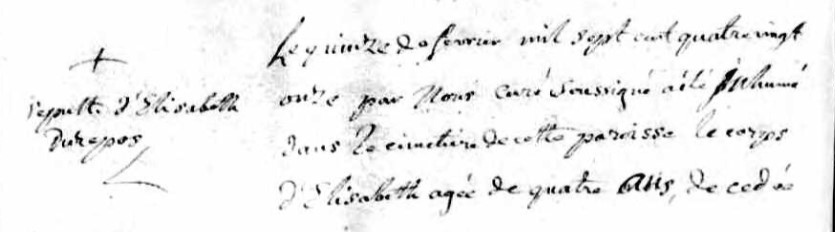 sepult. d'Elisabeth
Durepos
Le quinze de fevrier mil sept cent quatre vingt
onze par Nous curé soussigné a été inhumé
dans le cimetiere de cette paroisse le corps
d'Elisabeth agée de quatre ans, decedée